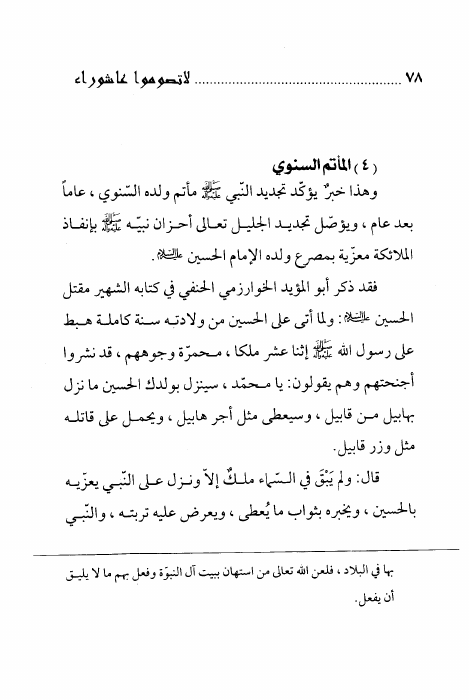 ٧٨ ........................................................ لاتصوموا عاشوراء
(٤) المأتم السنوي
وهذا خبرٌ يؤكّد تجديد النّبي ﷺ مأتم ولده السّنوي ، عاماً
بعد عام ، ويؤصّل تجديـد الجليل تعـالى أحـزان نبيّه ﷺ بإنفـاذ
الملائكة معزّية بمصرع ولده الإمام الحسين عليه السلام.
فقد ذكر أبو المؤيد الخوارزمي الحنفي في كتابه الشهير مقتل
الحسين عليه السلام: ولما أتى على الحسين من ولادته سنة كاملة هبط
على رسول الله ﷺ إثنا عشر ملكا ، محمرّة وجوههم ، قد نشروا
أجنحتهم وهم يقولون: يا محمّد ، سينزل بولدك الحسين ما نزل
بهابيل مـن قابيل ، وسيعطى مثل أجر هابيل ، ويحمل على قاتلـه
مثل وزر قابيل.
قال: ولم يَبْقَ في السّماء ملكٌ إلاّ ونـزل على النّبي يعزّيـه
بالحسين ، ويخبره بثواب ما يُعطى ، ويعرض عليه تربتـه ، والنّبي
بها في البلاد ، فلعن الله تعالى من استهان ببيت آل النبوّة وفعل بهم ما لا يليـق
أن يفعل.